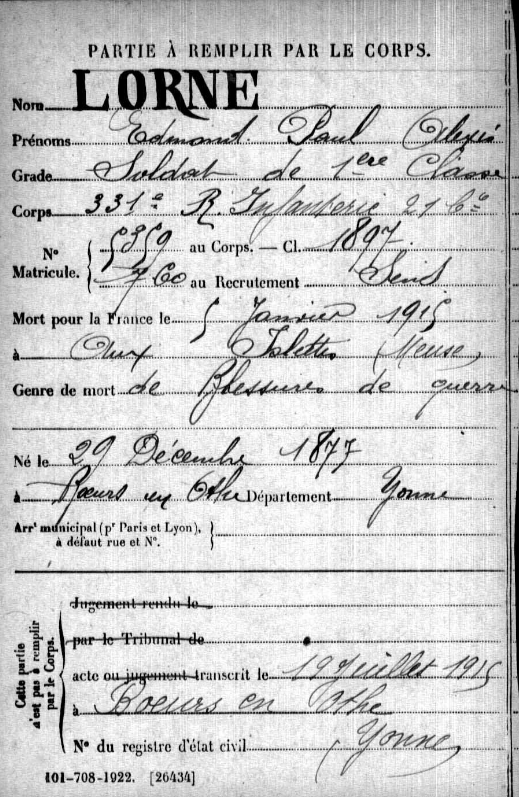 PARTIE À REMPLIR PAR LE CORPS.
Nom LORNE
Prénoms Edmond Paul Alexis
Grade Soldat de 1ere Classe
Corps 331e R. Infanterie 21 Cie
N° Matricule. { 5859 au Corps. — Cl. 1897
760 au Recrutement Sens
Mort pour la France le 5 Janvier 1915
à Aux Islettes (Meuse)
Genre de mort de Blessures de guerre
Né le 29 Décembre 1877
à Bœurs en Othe Département Yonne
Arrt municipal (pr Paris et Lyon), }
à défaut rue et N°.
Cette partie n'est pas à remplir par le Corps.
Jugement rendu le
par le Tribunal de
acte ou jugement transcrit le 19 Juillet 1915
à Boeurs en Othe
N° du registre d'état civil (Yonne)
101-708-1922. [26434]